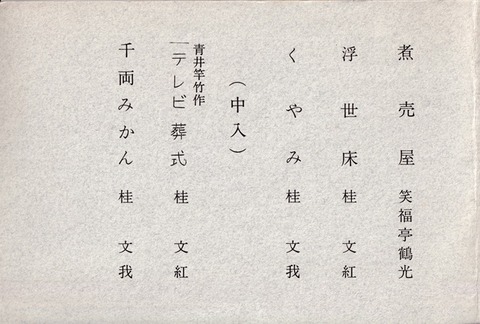 煮売屋 笑福亭鶴光
浮世床 桂文紅
くやみ 桂文我
(中入)
青井竿竹作
テレビ葬式 桂文紅
千両みかん 桂文我